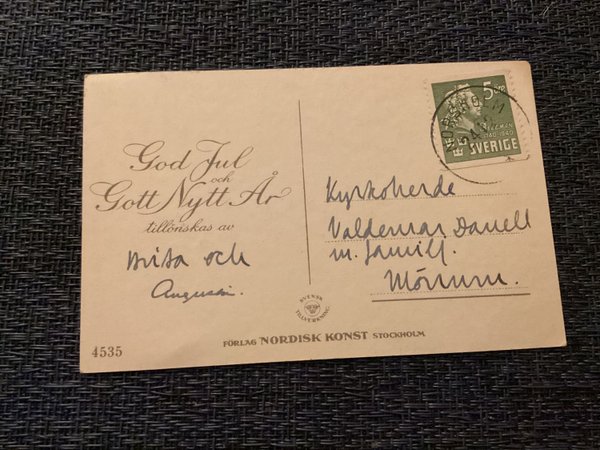 God Jul
och
Gott Nytt År
tillönskas av
Brita och
4535
5 öre
1740-1940
SVERIGE
Kyrkoherde
Valdemar Danell
m. familj.
Mörrum.
SVENSK
TILLVERKNING
FÖRLAG NORDISK KONST STOCKHOLM